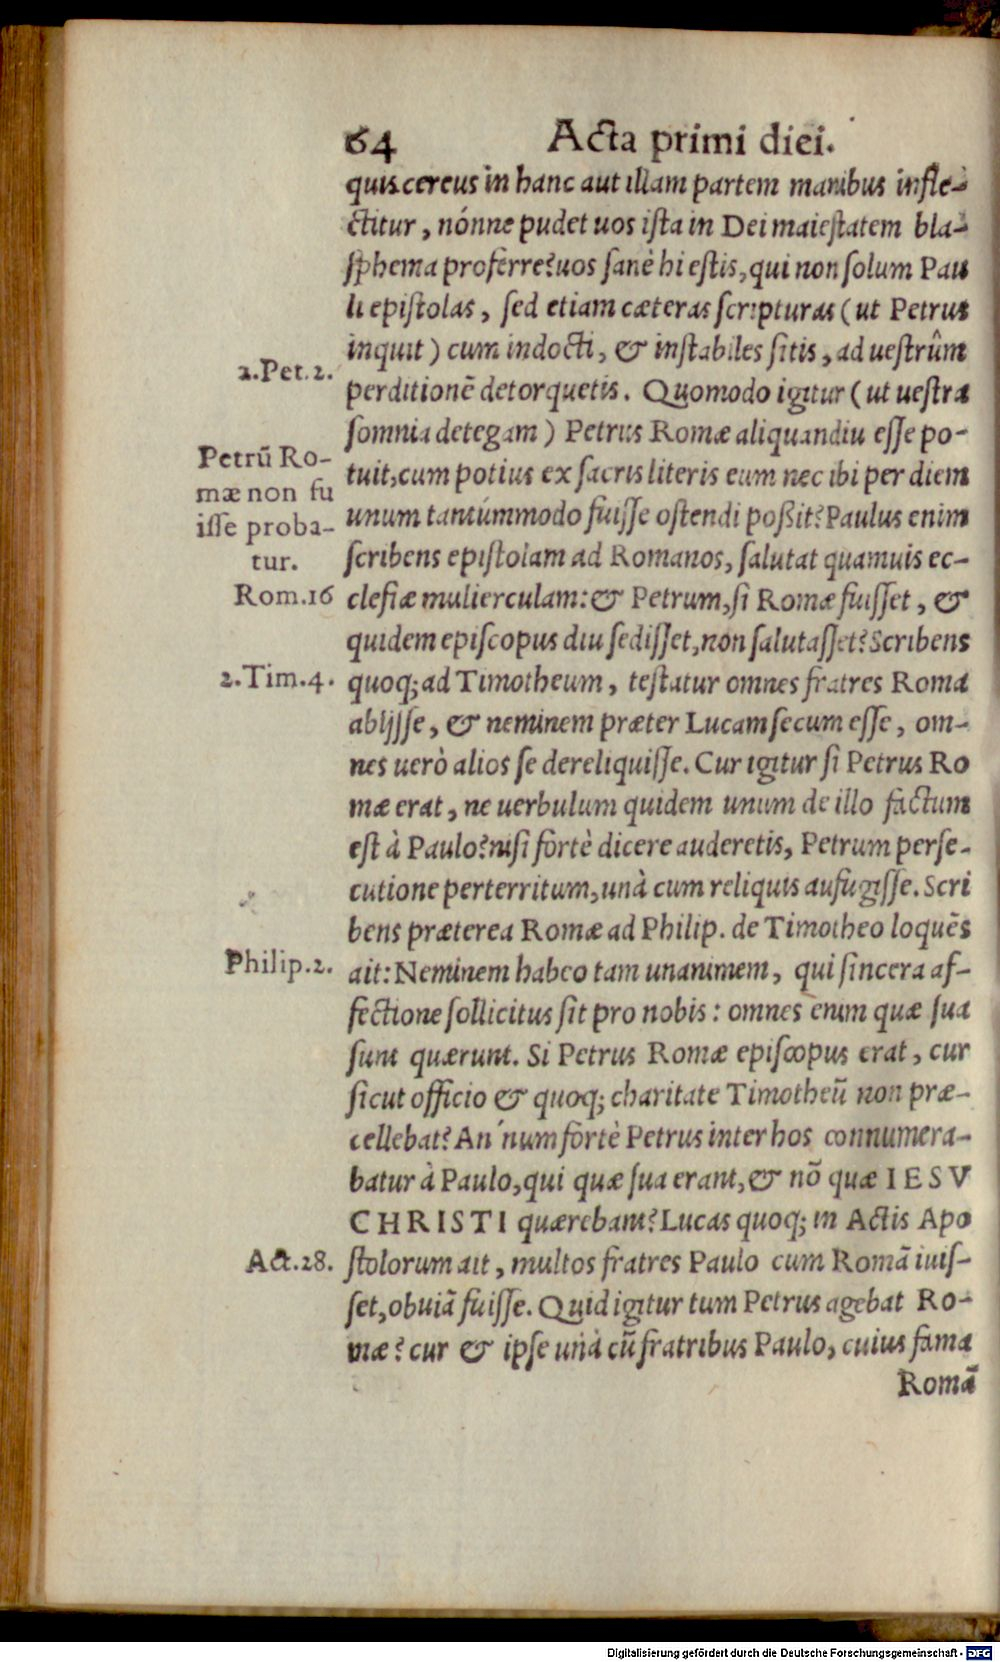 64 Acta primi diei.
quis cereus in hanc aut illam partem manibus infle-
ctitur, nónne pudet uos ista in Dei maiestatem bla-
sphema proferre? uos sanè hi estis, qui non solum Pau
li epistolas, sed etiam cæteras scripturas (ut Petrus
inquit) cum indocti, & instabiles sitis, ad uestrûm
2.Pet.2.
perditionē detorquetis. Quomodo igitur (ut uestra
somnia detegam) Petrus Romæ aliquandiu esse po-
Petrū Ro-
mæ non fu
isse proba-
tur.
tuit, cum potius ex sacris literis eum nec ibi per diem
unum tantúmmodo fuisse ostendi poßit? Paulus enim
scribens epistolam ad Romanos, salutat quamuis ec-
Rom.16
clesiæ mulierculam: & Petrum, si Romæ fuisset, &
quidem episcopus diu sedisset, non salutasset? Scribens
2.Tim.4.
quoq; ad Timotheum, testatur omnes fratres Roma
abijsse, & neminem præter Lucam secum esse, om-
nes uerò alios se dereliquisse. Cur igitur si Petrus Ro
mæ erat, ne uerbulum quidem unum de illo factum
est à Paulo? nisi fortè dicere auderetis, Petrum perse-
cutione perterritum, unà cum reliquis aufugisse. Scri
bens præterea Romæ ad Philip. de Timotheo loquēs
Philip.2.
ait: Neminem habeo tam unanimem, qui sincera af-
fectione sollicitus sit pro nobis: omnes enim quæ sua
sunt quærunt. Si Petrus Romæ episcopus erat, cur
sicut officio & quoq; charitate Timotheū non præ-
cellebat? An' num fortè Petrus inter hos connumera-
batur à Paulo, qui quæ sua erant, & nō quæ IESV
CHRISTI quærebant? Lucas quoq; in Actis Apo
Act.28.
stolorum ait, multos fratres Paulo cum Romā iuis-
set, obuiā fuisse. Quid igitur tum Petrus agebat Ro-
mæ? cur & ipse unà cū fratribus Paulo, cuius fama
Romā
Digitalisierung gefördert durch die Deutsche Forschungsgemeinschaft - DFG